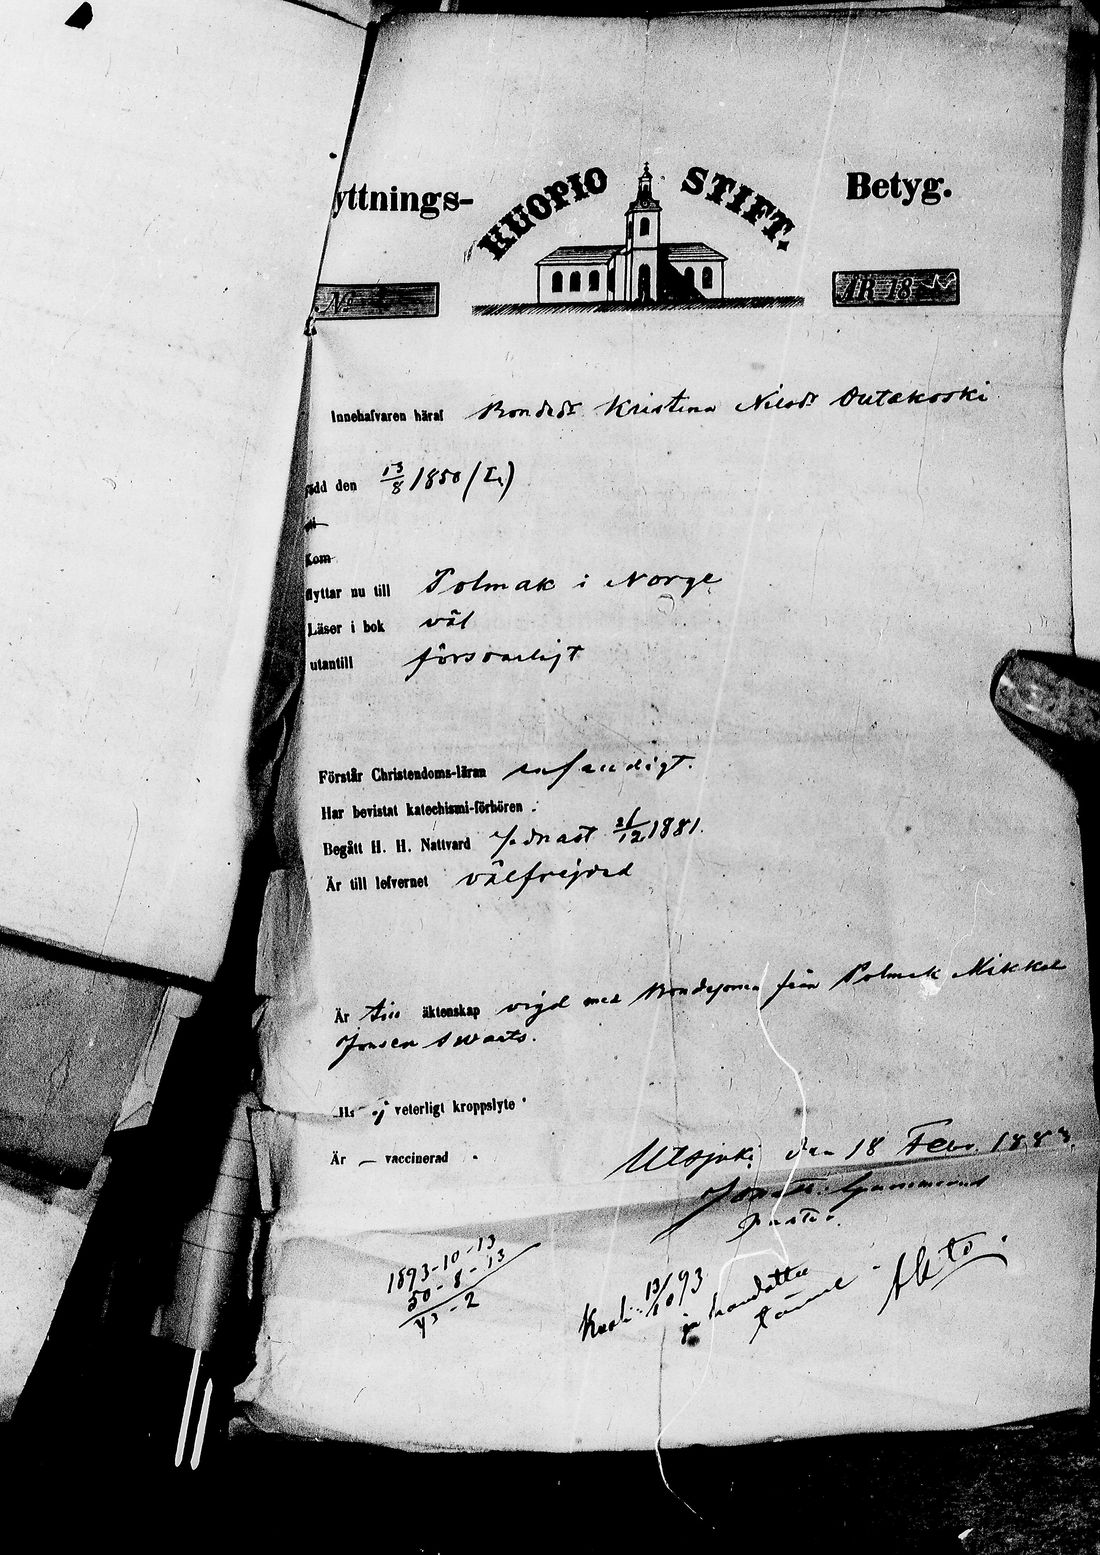 yttnings- KUOPIO STIFT. Betyg.
No ÅR 18
Innehafvaren häraf Bonded:r Kristina Nilsd:r Outakoski
född den 13/8 1850 (L.)
Kom
flyttar nu till Polmak i Norge
Läser i bok väl
utantill försvarligt
Förstår Christendoms-läran
Har bevistat katechismi-förhören
Begått H. H. Nattvard sednast 26/12 1881.
Är till lefvernet välfrejdad
Är till äktenskap vigd med Bondesonen från Polmak Mikkel
Jonsen Swarts.
ej veterligt kroppslyte
Är vaccinerad
Utsjoki den 18 Febr. 1883.
Pastor.
1893-10-13
50-8-13
43-2
13/10 93